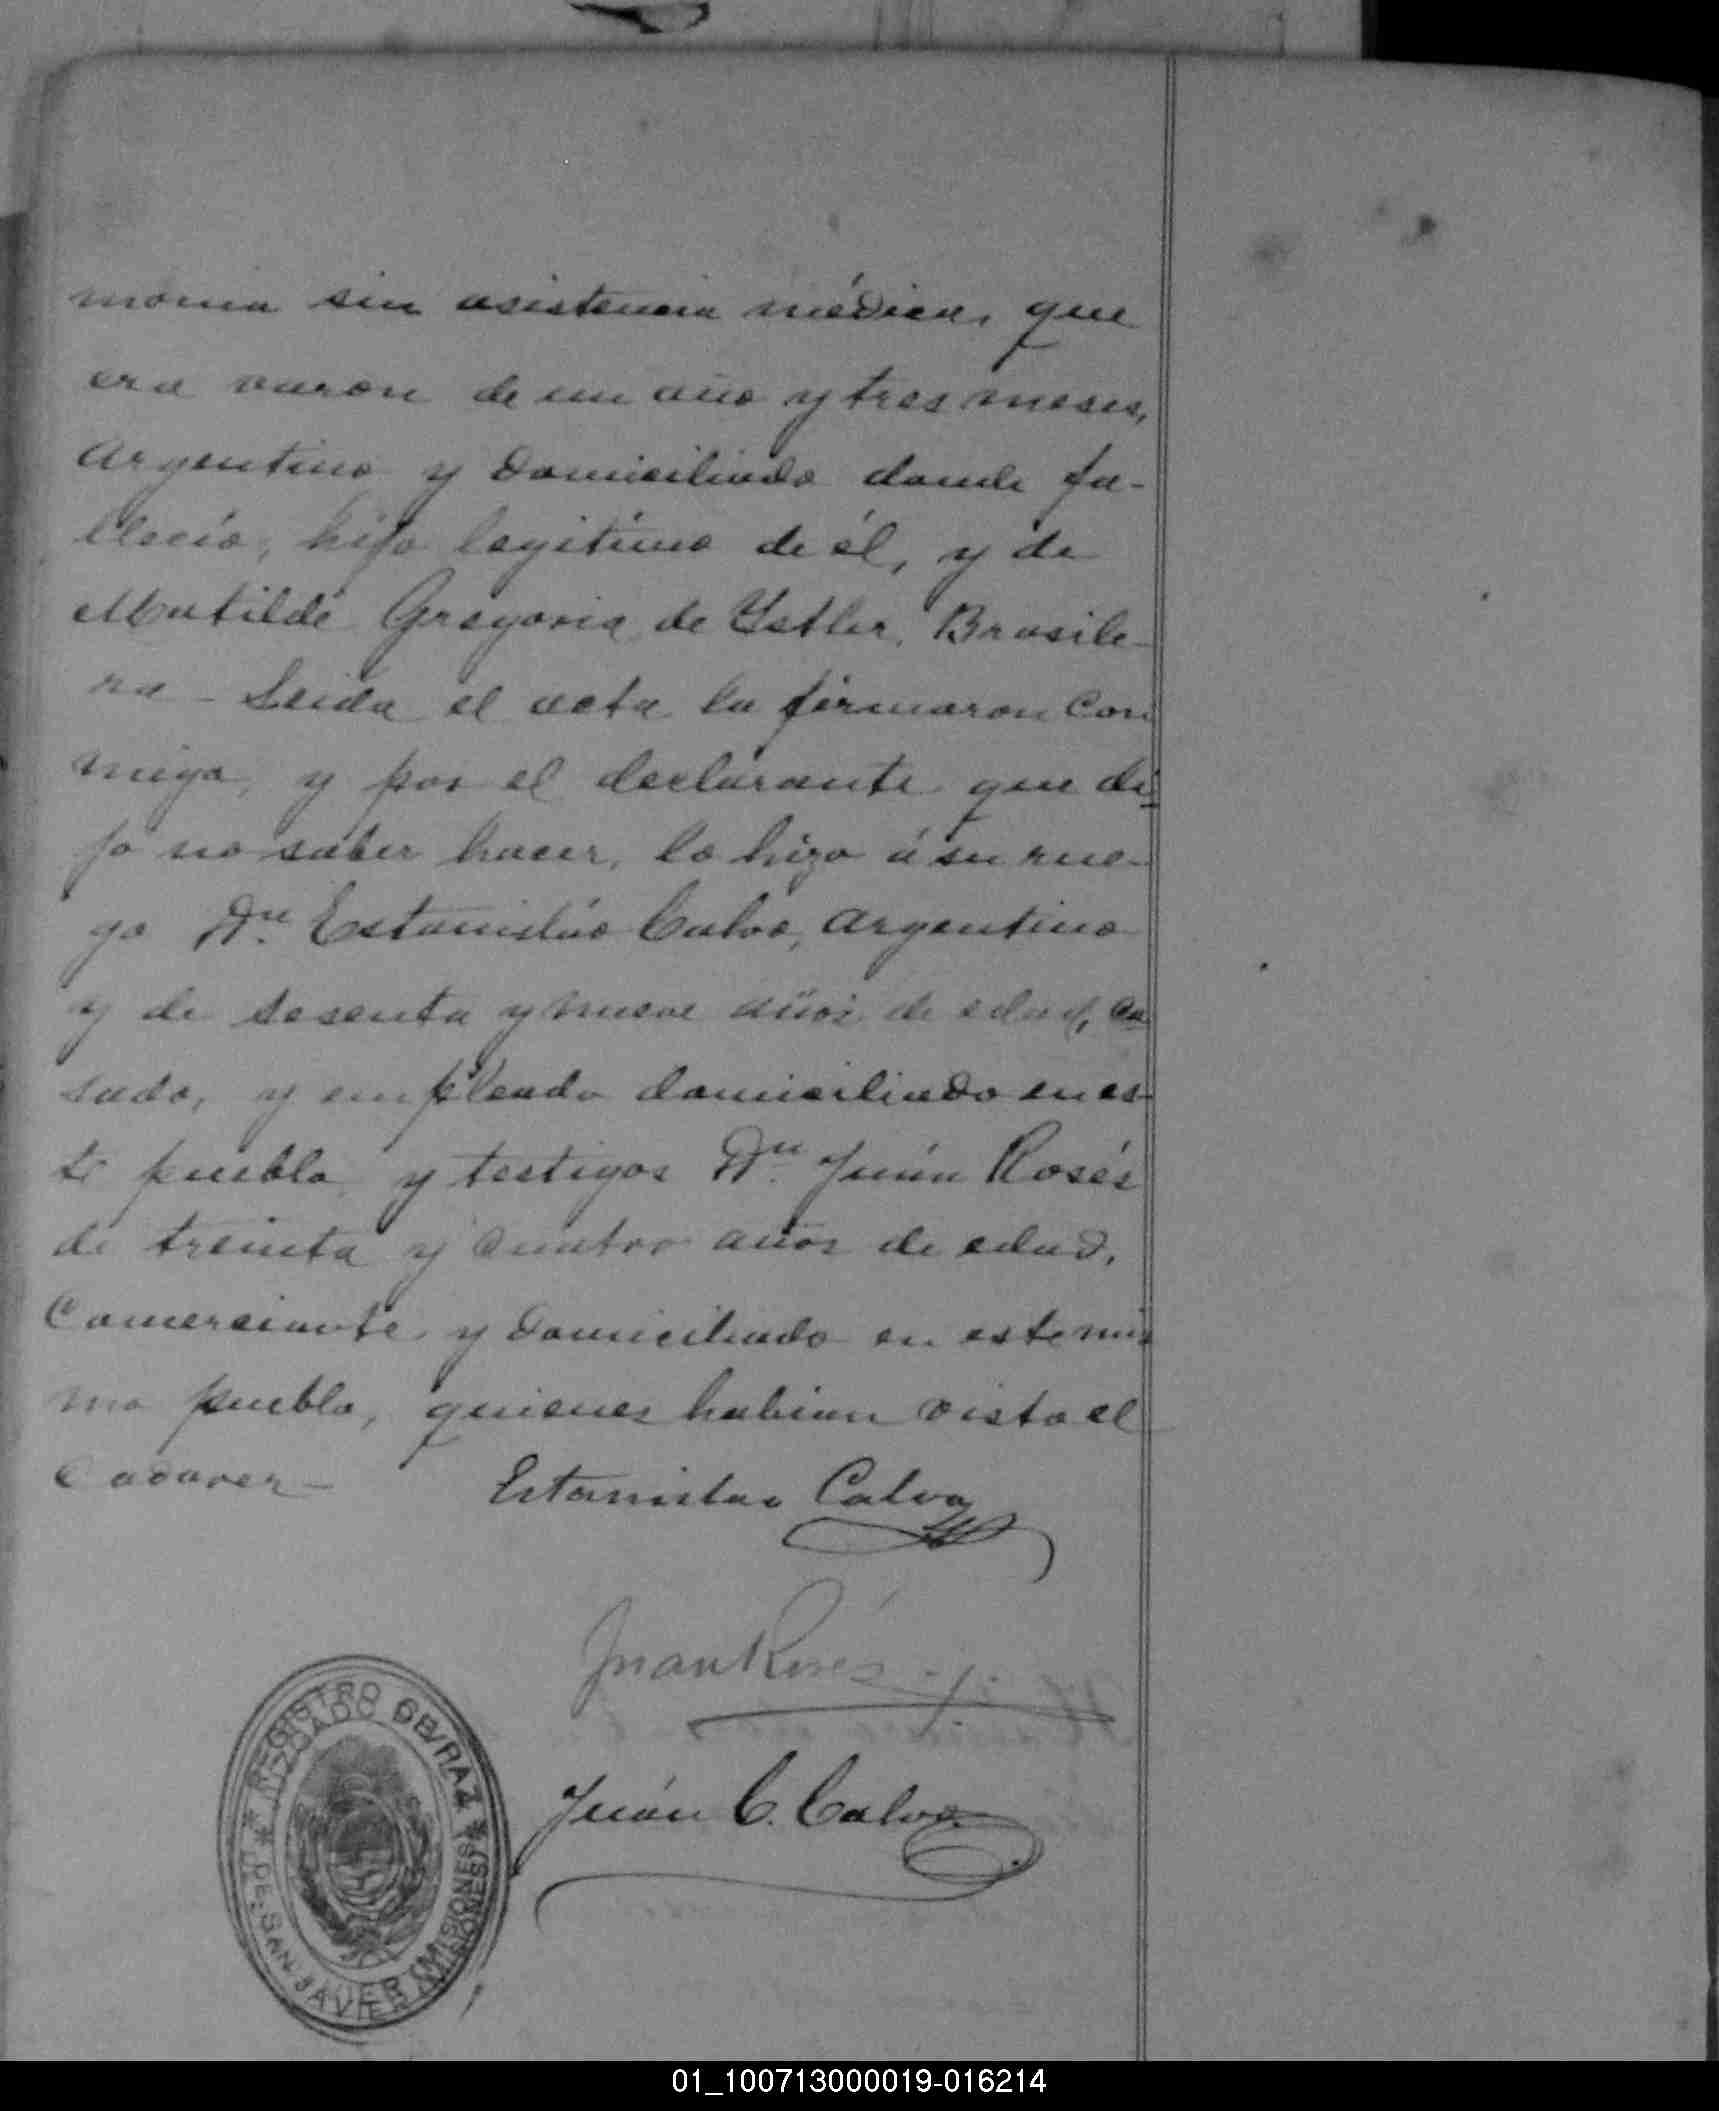 monia sin asistencia médica, que
era varon de un año y tres meses,
Argentino y domiciliado donde fa-
llecío, hijo legítimo de él, y de
Matilde Gregoria de Ystler, Brasile-
ra - Leida el acta la firmaron con
migo, y por el declarante que di-
jo no saber hacer, lo hizo á su rue-
go Dn. Estanisláo Calvo, Argentino
y de sesenta y nueve años de edad, ca
sado, y empleado domiciliado en es-
te pueblo y testigos Dn. Juán Rosés
de treinta y cuatro años de edad,
Comerciante y domiciliado en este mis
mo pueblo, quienes habian visto el
Cadaver - Estanislao Calvo
Juan Rosés
Juán C. Calvo
REGISTRO
JUZGADO DE PAZ
DE SAN JAVIER (MISIONES)
01_100713000019-016214